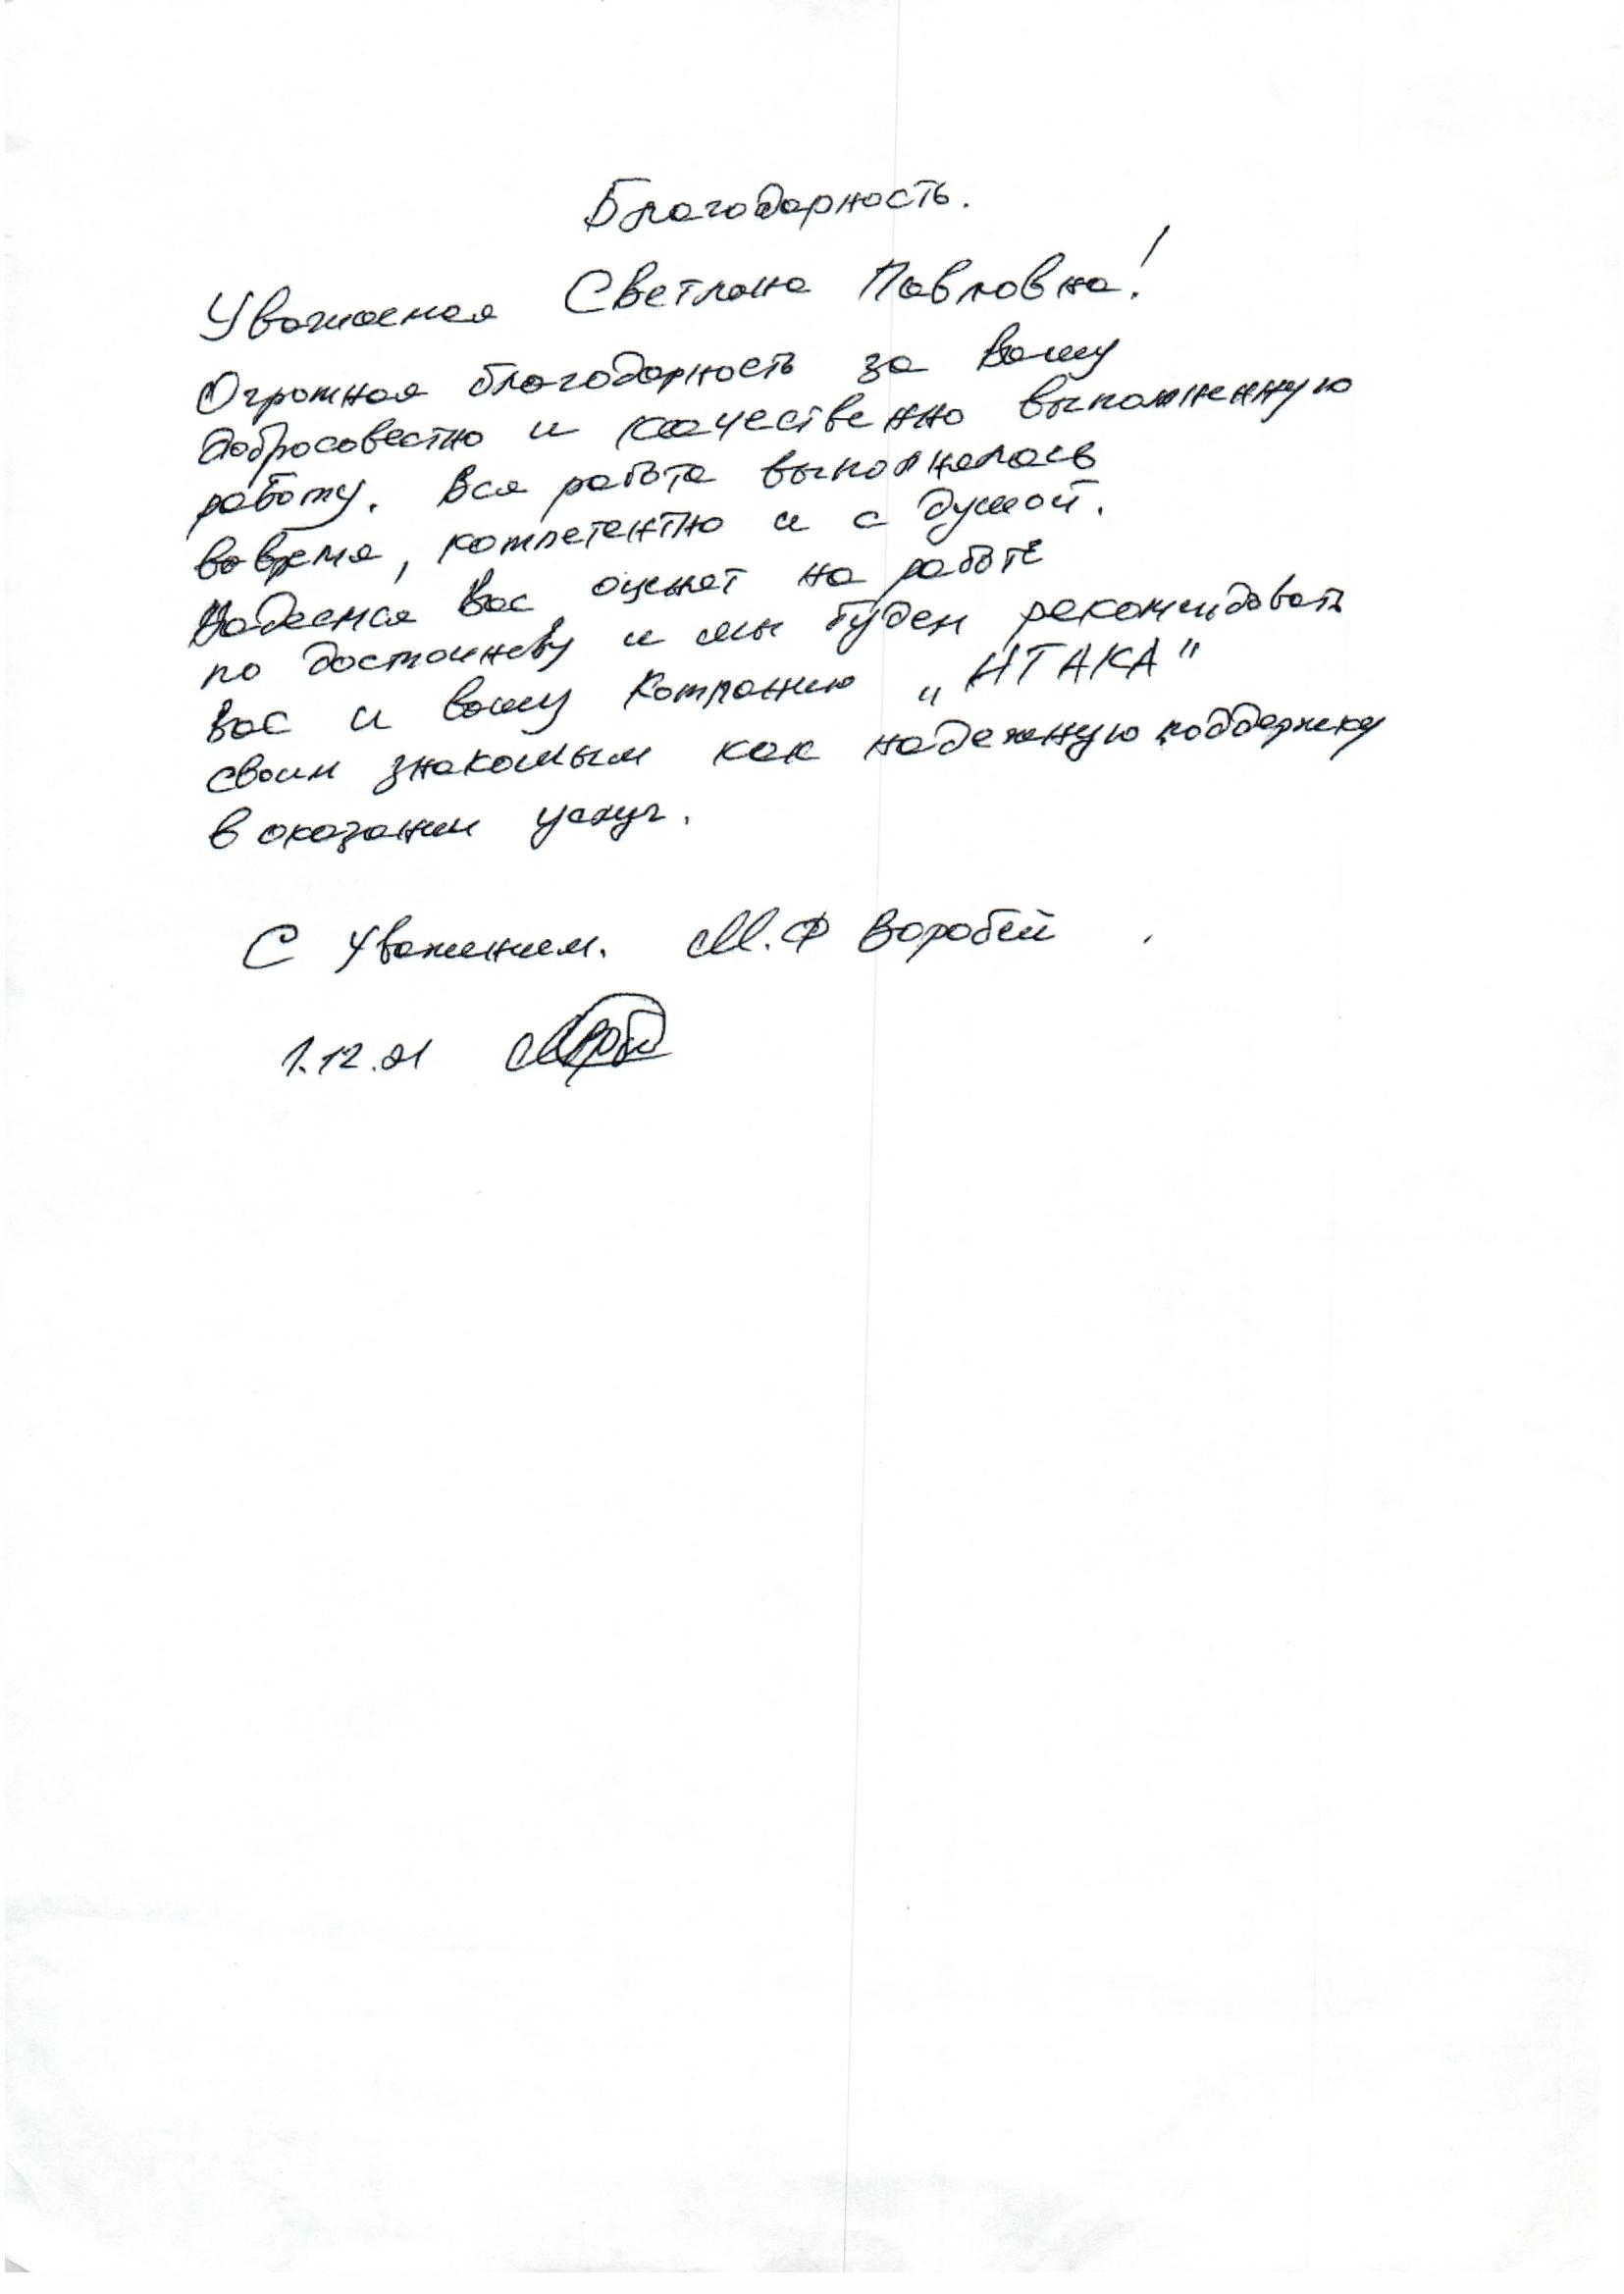 Благодарность.
Уважаемая Светлана Павловна!
Огромная благодарность за Вашу
добросовестно и качественно выполненную
работу. Вся работа выполнялась
вовремя, компетентно и с душой.
Надеемся Вас оценят на работе
по достоинству и мы будем рекомендовать
Вас и вашу компанию „ИТАКА"
своим знакомым как надежную поддержку
в оказании услуг.
С Уважением. М.Ф Воробей
1.12.21